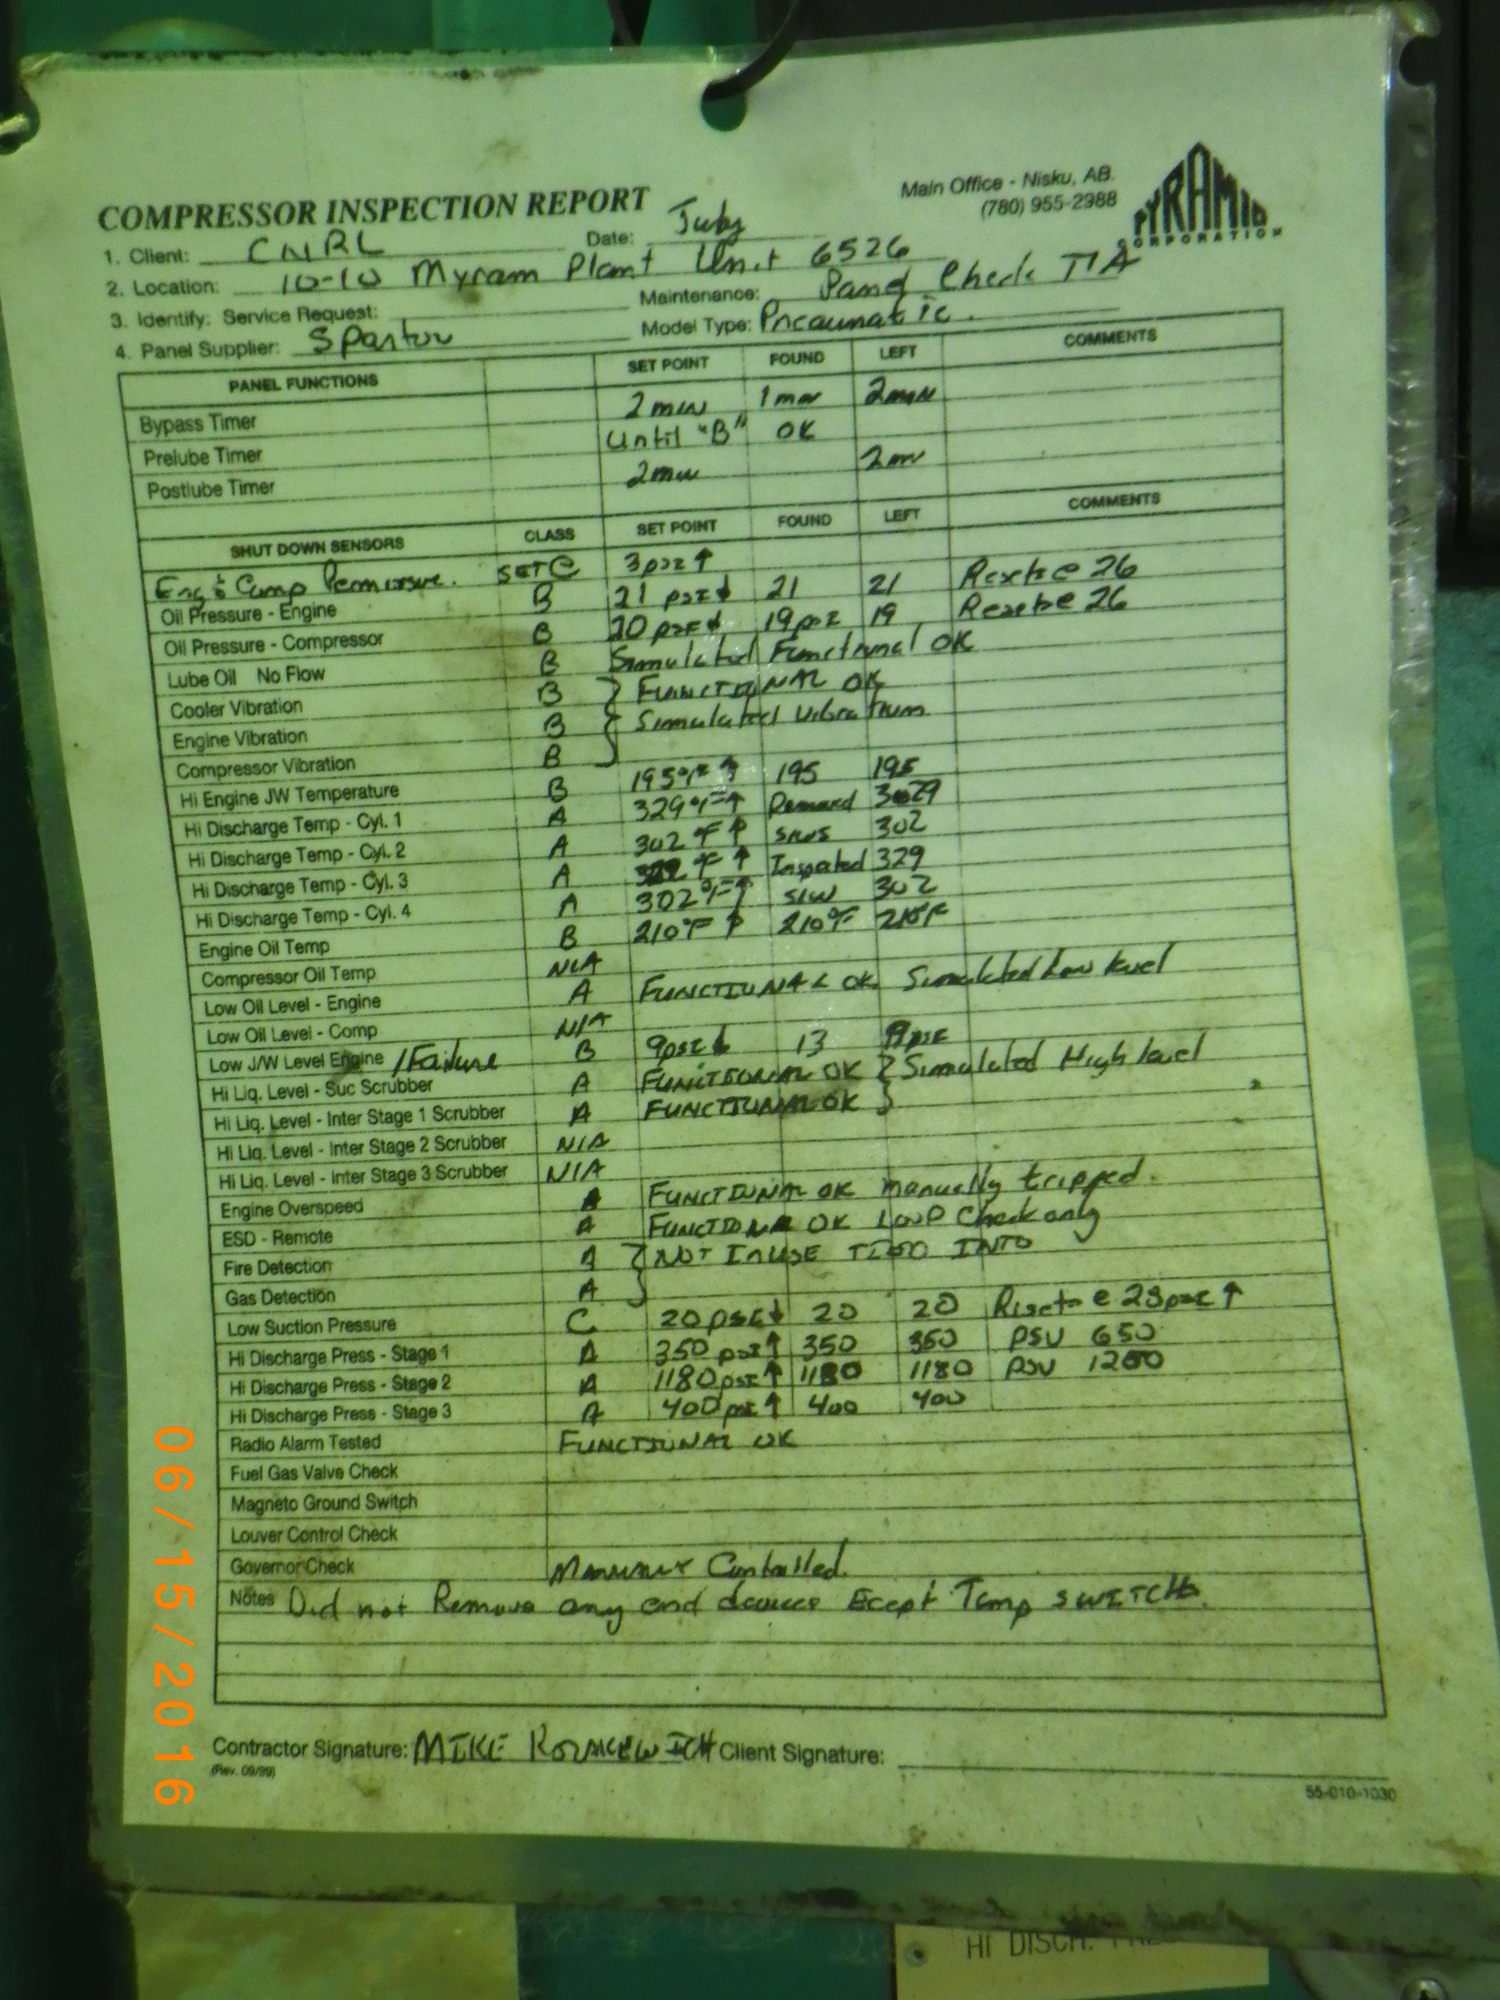 COMPRESSOR INSPECTION REPORT
Main Office - Nisku, AB.
(780) 955-2988
PYRAMID
CORPORATION
1. Client: CNRL Date: July
2. Location: 10-10 Myram Plant Unit 6526
3. Identify: Service Request: Maintenance: Panel Check TIA
4. Panel Supplier: Spartan Model Type: Pneaumatic.
PANEL FUNCTIONS SET POINT FOUND LEFT COMMENTS
Bypass Timer 2 min 1 min 2 min
Prelube Timer Until "B" OK
Postlube Timer 2 min 2 min
SHUT DOWN SENSORS CLASS SET POINT FOUND LEFT COMMENTS
Eng & Comp Permissive. SET C 3 PSI ↑
Oil Pressure - Engine B 21 PSI ↓ 21 21 Resets @ 26
Oil Pressure - Compressor B 20 PSI ↓ 19 PSI 19 Resets @ 26
Lube Oil No Flow B Simulated Functional OK
Cooler Vibration B } FUNCTIONAL OK
Engine Vibration B Simulated Vibration
Compressor Vibration B
Hi Engine JW Temperature B 195°F ↑ 195 195
Hi Discharge Temp - Cyl. 1 A 329°F ↑ Removed 329
Hi Discharge Temp - Cyl. 2 A 302°F ↑ 302
Hi Discharge Temp - Cyl. 3 A 329°F ↑ Inspected 329
Hi Discharge Temp - Cyl. 4 A 302°F ↑ 302
Engine Oil Temp B 210°F ↑ 210°F 210°F
Compressor Oil Temp N/A
Low Oil Level - Engine A FUNCTIONAL OK Simulated Low level
Low Oil Level - Comp N/A
Low J/W Level Engine / Failure B 9 PSI ↓ 13 9 PSI
Hi Liq. Level - Suc Scrubber A FUNCTIONAL OK } Simulated High level
Hi Liq. Level - Inter Stage 1 Scrubber A FUNCTIONAL OK
Hi Liq. Level - Inter Stage 2 Scrubber N/A
Hi Liq. Level - Inter Stage 3 Scrubber N/A
Engine Overspeed A FUNCTIONAL OK manually tripped.
ESD - Remote A FUNCTIONAL OK LOOP Check only
Fire Detection A } NOT In USE TIED INTO
Gas Detection A
Low Suction Pressure C 20 PSI ↓ 20 20 Reset @ 28 PSI ↑
Hi Discharge Press - Stage 1 A 350 PSI ↑ 350 350 PSV 650
Hi Discharge Press - Stage 2 A 1180 PSI ↑ 1180 1180 PSV 1260
Hi Discharge Press - Stage 3 A 400 PSI ↑ 400 400
Radio Alarm Tested FUNCTIONAL OK
Fuel Gas Valve Check
Magneto Ground Switch
Louver Control Check
Governor Check Controlled.
Notes Did not Remove any end devices Ecept Temp SWITCHS.
Contractor Signature: MIKE Client Signature:
(Rev. 09/99)
55-010-1030
06/15/2016
HI DISCH.